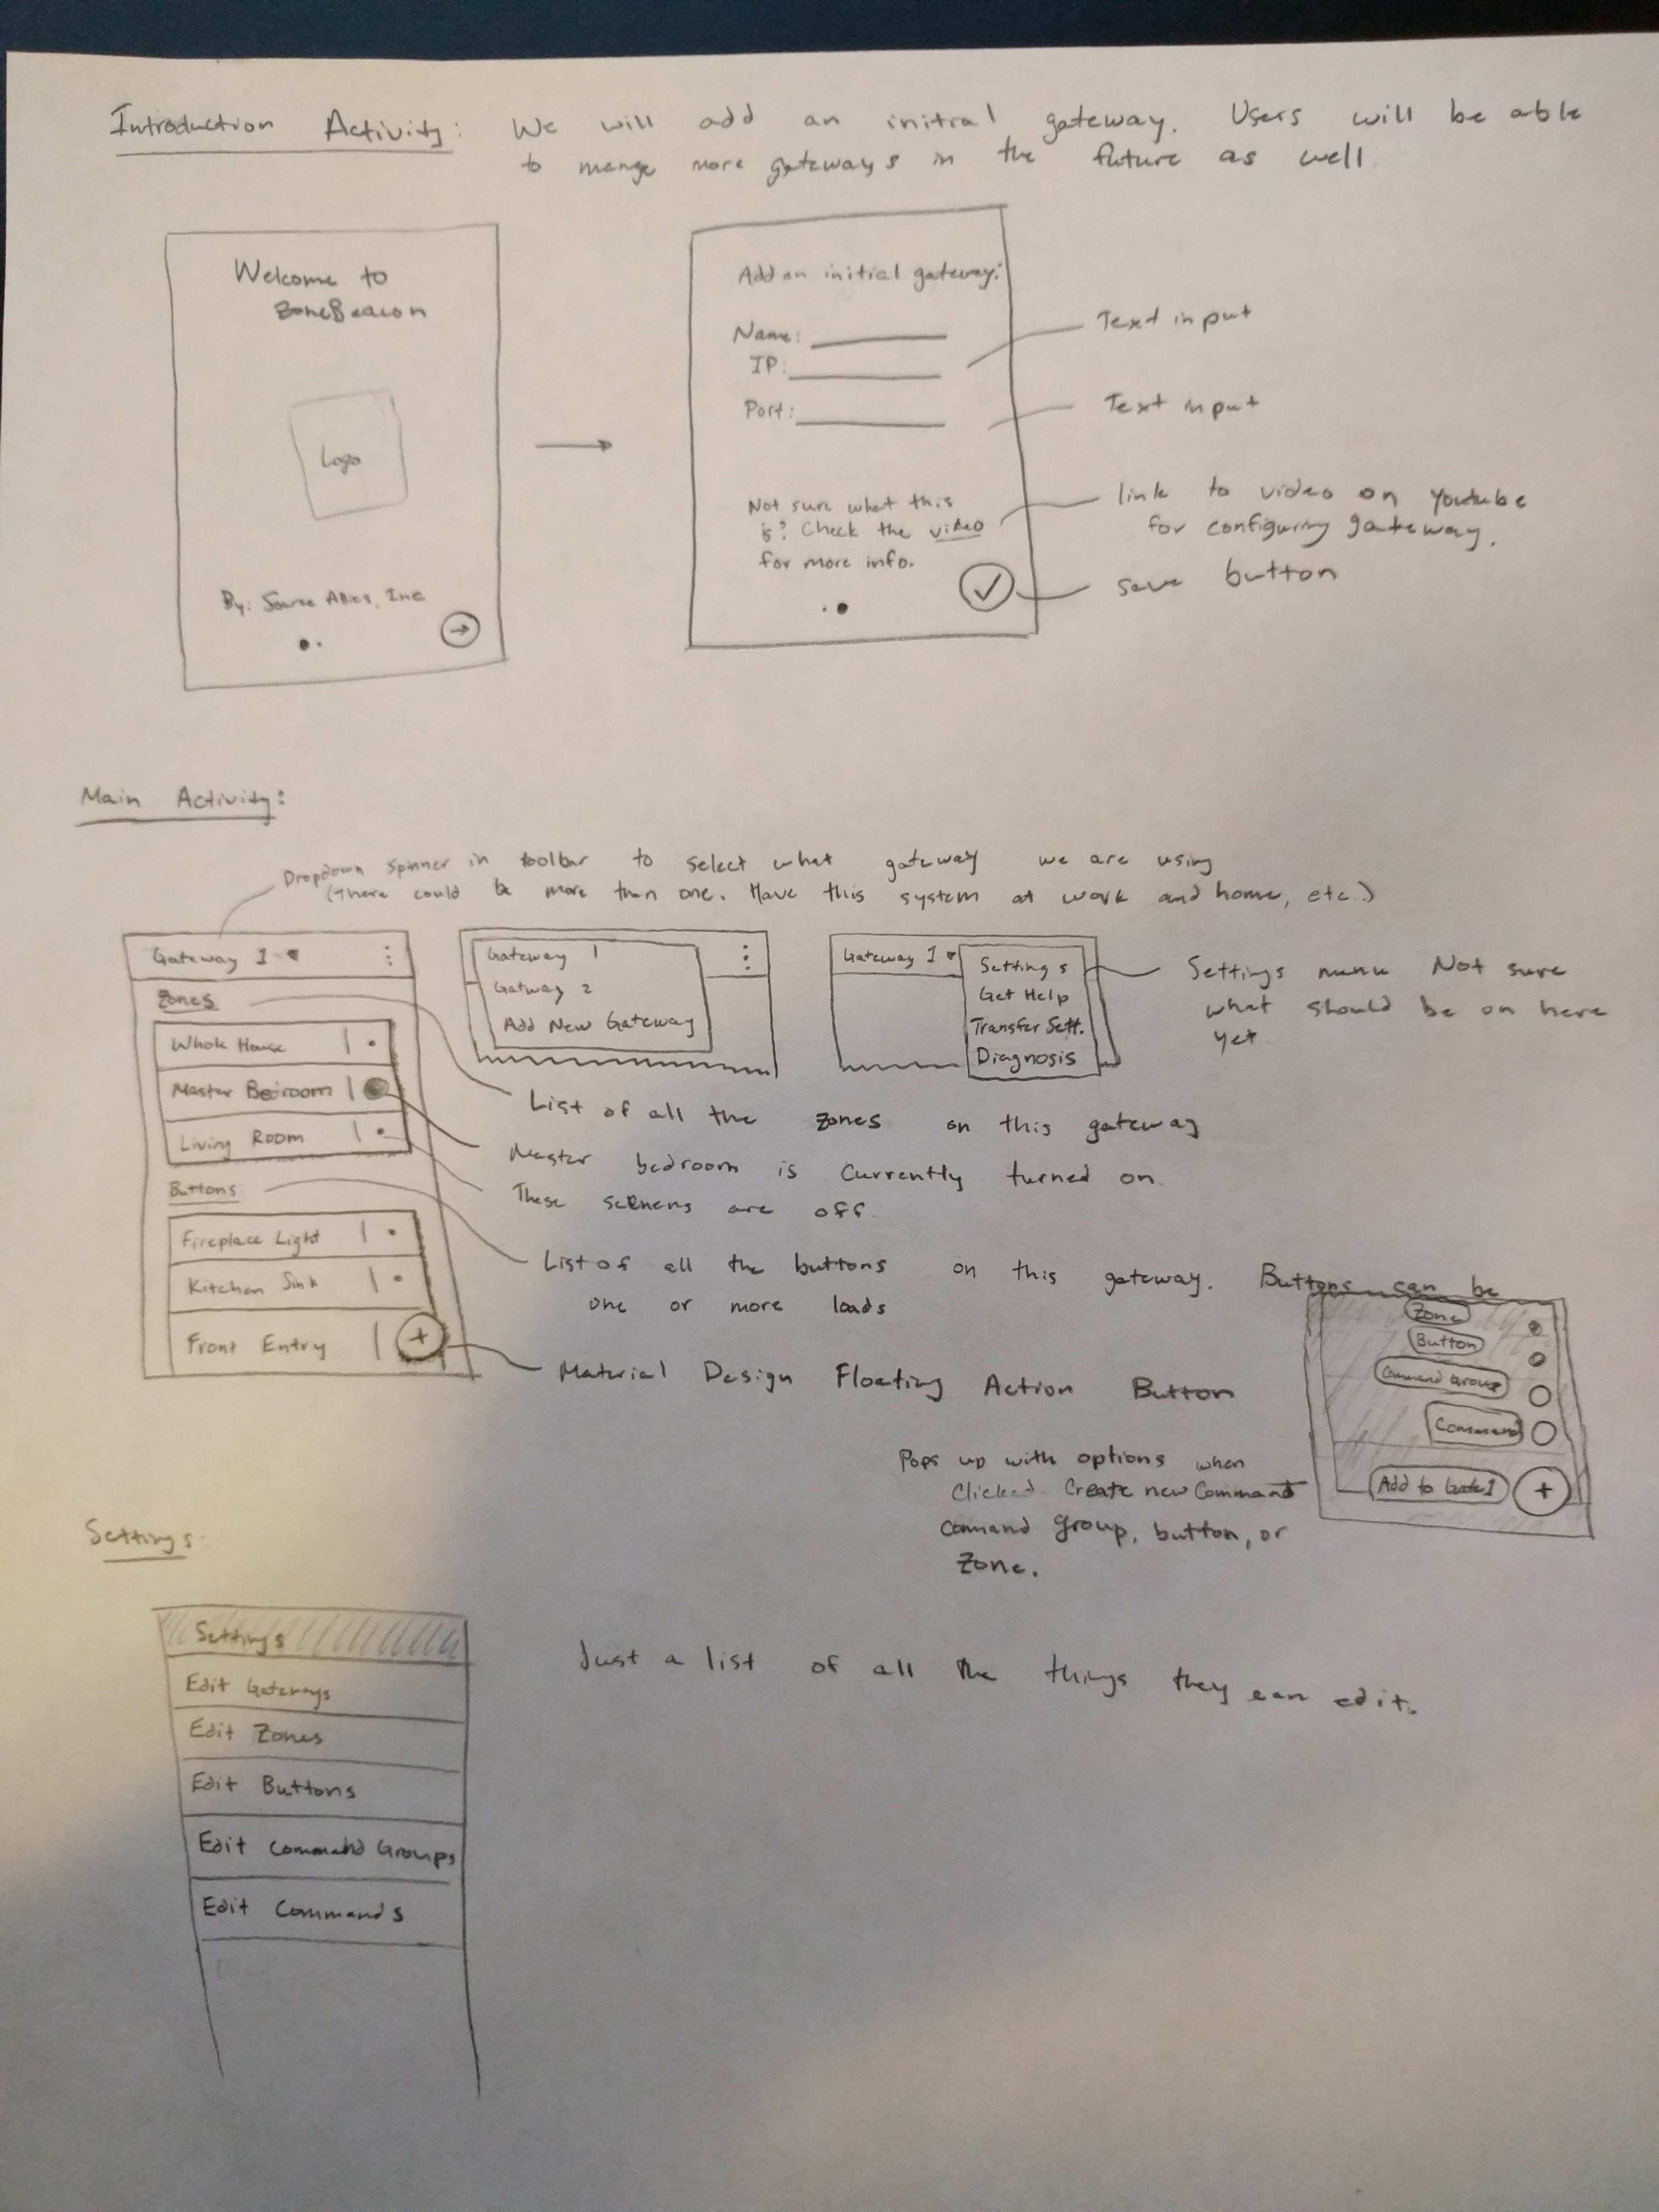 Introduction Activity: We will add an initial gateway. Users will be able
to mange more gateways in the future as well.
Welcome to
ZoneBeacon
Logo
By: Source Allies, Inc
Add an initial gateway:
Name:
IP:
Port:
Not sure what this
is? Check the video
for more info.
Text input
Text input
link to video on Youtube
for configuring gateway.
save button
Main Activity:
Dropdown spinner in toolbar to select what gateway we are using
(There could be more than one. Have this system at work and home, etc.)
Gateway 1
Zones
Whole House
Master Bedroom
Living Room
Buttons
Fireplace Light
Kitchen Sink
Front Entry
+
Gateway 1
Gatway 2
Add New Gateway
Gateway 1
Settings
Get Help
Transfer Sett.
Diagnosis
Settings menu. Not sure
what should be on here
yet.
List of all the zones on this gateway
Master bedroom is currently turned on.
These are off.
List of all the buttons on this gateway. Buttons can be
one or more loads
Material Design Floating Action Button
Pops up with options when
clicked. Create new Command
command group, button, or
zone.
Zone
Button
Command Group
Command
Add to Gate 1
+
Settings
Settings
Edit Gateways
Edit Zones
Edit Buttons
Edit Command Groups
Edit Commands
Just a list of all the things they can edit.